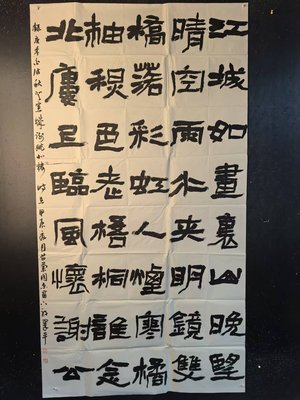 江城如畫裏山晚望
晴空兩水夾明鏡雙
橋落彩虹人煙寒橘
柚秋色老梧桐誰念
北樓上臨風懷謝公
錄唐李白詩秋登宣城謝朓北樓 時在甲辰